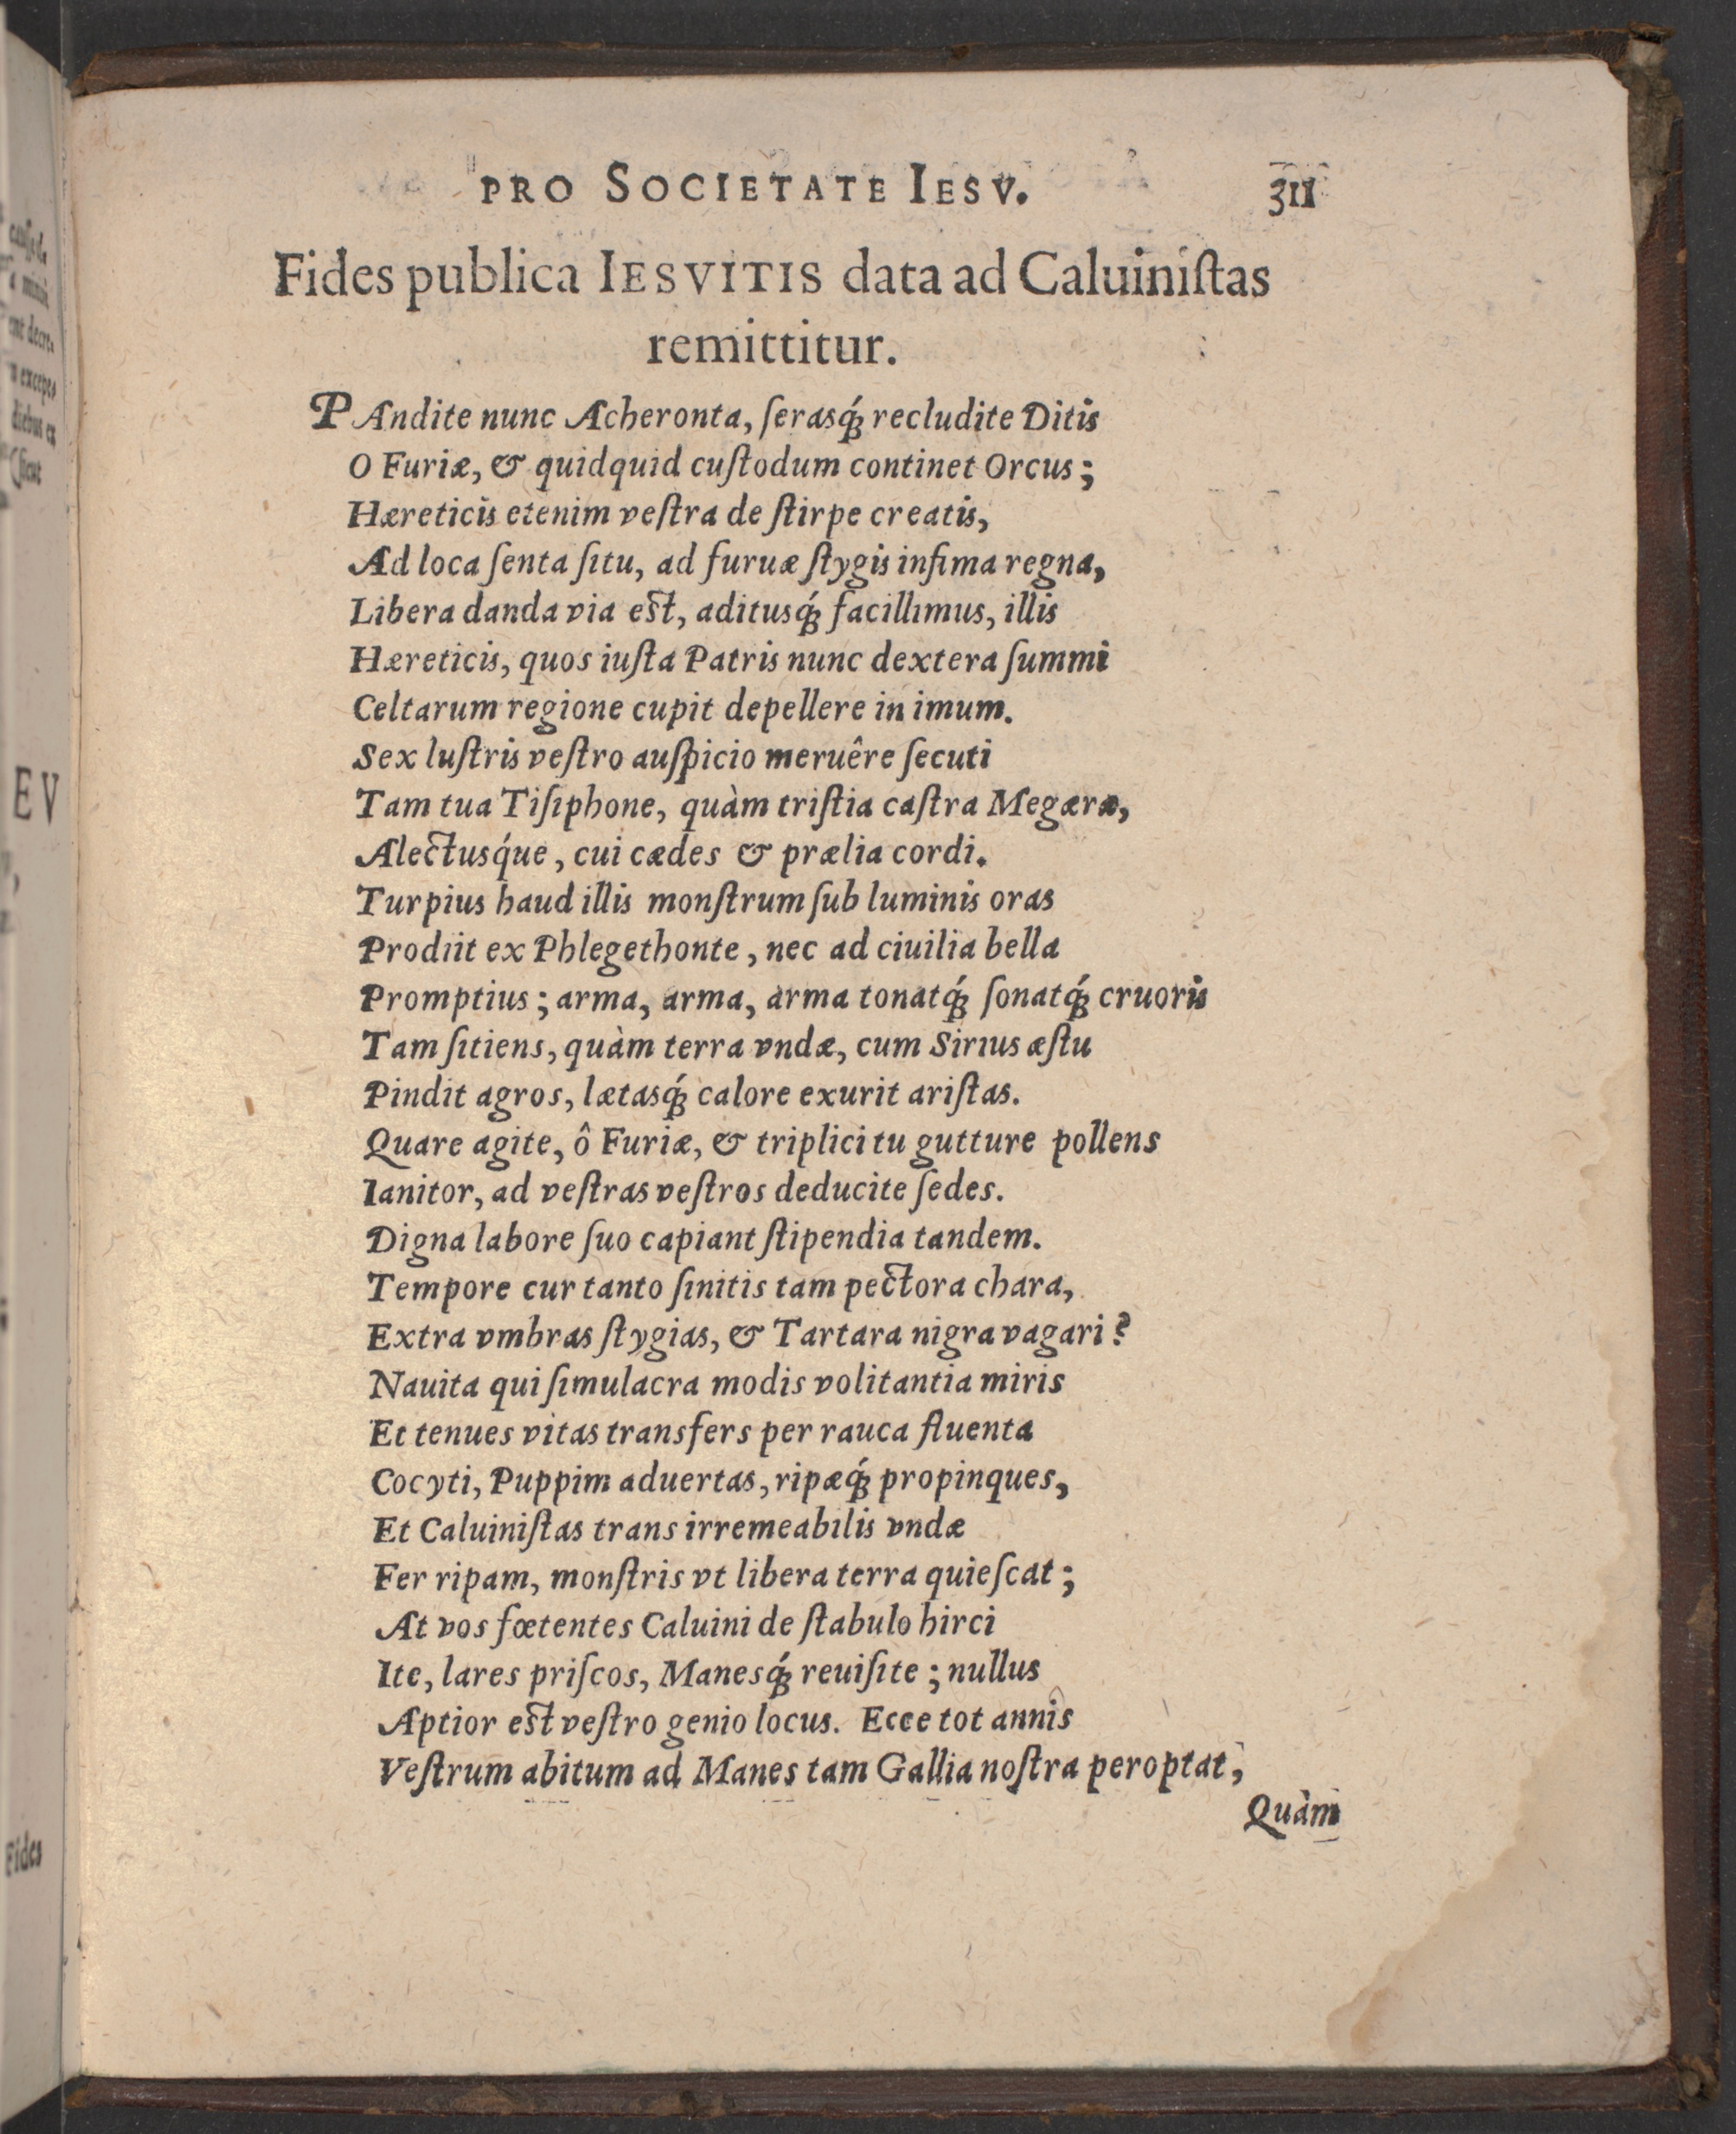 PRO SOCIETATE IESV. 311
Fides publica IESVITIS data ad Caluiniſtas
remittitur.
PAndite nunc Acheronta, ſerasq́; recludite Ditis
O Furiæ, & quidquid cuſtodum continet Orcus;
Hæreticis etenim veſtra de ſtirpe creatis,
Ad loca ſenta ſitu, ad furuæ ſtygis infima regna,
Libera danda via est, aditusq́; facillimus, illis
Hæreticis, quos iuſta Patris nunc dextera ſummi
Celtarum regione cupit depellere in imum.
Sex luſtris veſtro auſpicio meruêre ſecuti
Tam tua Tiſiphone, quàm triſtia caſtra Megæræ,
Alectusq́ue, cui cædes & prælia cordi.
Turpius haud illis monſtrum ſub luminis oras
Prodiit ex Phlegethonte, nec ad ciuilia bella
Promptius; arma, arma, arma tonatq́; ſonatq́; cruoris
Tam ſitiens, quàm terra vndæ, cum Sirius æſtu
Pindit agros, lætasq́; calore exurit ariſtas.
Quare agite, ô Furiæ, & triplici tu gutture pollens
Ianitor, ad veſtras veſtros deducite ſedes.
Digna labore ſuo capiant ſtipendia tandem.
Tempore cur tanto ſinitis tam pectora chara,
Extra vmbras ſtygias, & Tartara nigra vagari?
Nauita qui ſimulacra modis volitantia miris
Et tenues vitas transfers per rauca fluenta
Cocyti, Puppim aduertas, ripæq́; propinques,
Et Caluiniſtas trans irremeabilis vndæ
Fer ripam, monſtris vt libera terra quieſcat;
At vos fœtentes Caluini de ſtabulo hirci
Ite, lares priſcos, Manesq́; reuiſite; nullus
Aptior est veſtro genio locus. Ecce tot annis
Veſtrum abitum ad Manes tam Gallia noſtra peroptat,
Quàm
EV
Fides